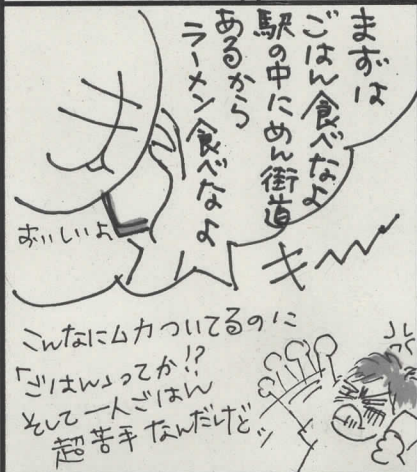 まずは
ごはん食べなよ
駅の中にめん街道
あるから
ラーメン食べなよ
おいしいよ
キー
こんなにムカついてるのに
「ごはん」ってか!?
そして一人ごはん
超苦手なんだけど